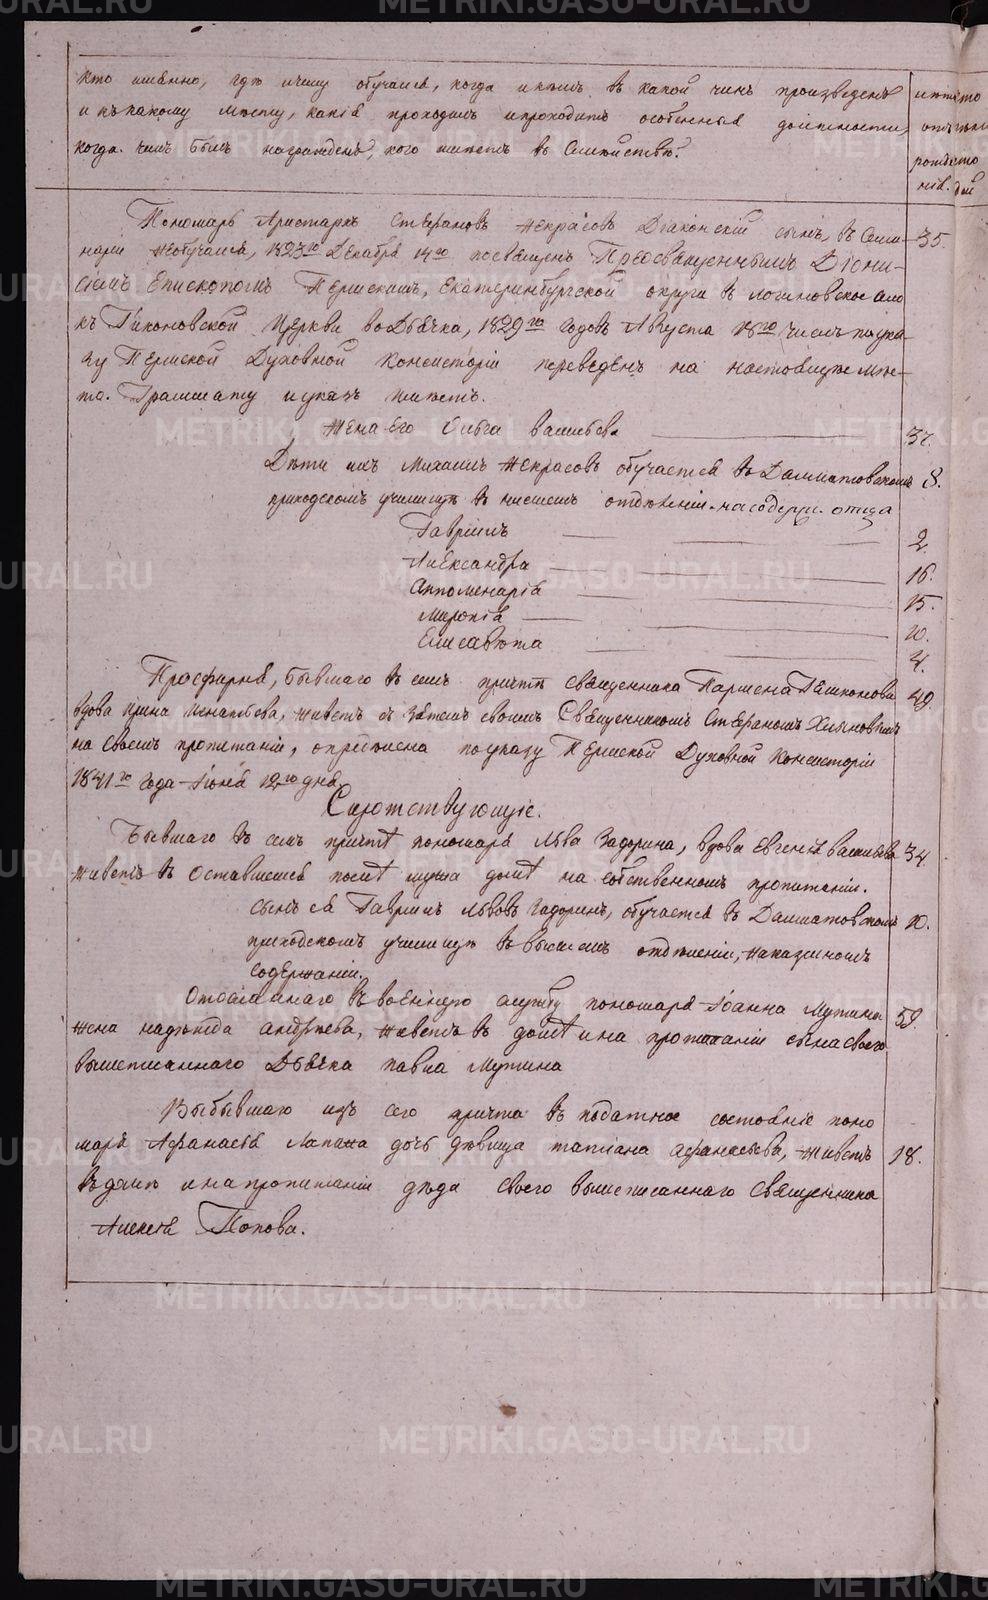 кто именно, гдѣ и чему обучался, когда и кѣмъ въ какой чинъ произведенъ
и къ какому мѣсту, какія проходилъ и проходитъ особенныя должности,
когда чѣмъ былъ награжденъ, кого имѣетъ въ семействѣ?
рожденія
Пономарь Аристархъ Стефановъ Некрасовъ Діаконскій сынъ, въ Семи-
наріи необучался, 1823го Декабря 14го посвященъ Преосвященнымъ Діони-
сіемъ Епископомъ Пермскимъ, Екатеринбургской округи въ Логиновское село
къ Тихоновской Церкви во Дьячка, 1829го Года Августа 18го числа по ука-
зу Пермской Духовной Консисторіи переведенъ на настоящее мѣс-
то. Граммату и указъ имѣетъ.
35.
Жена Его Ольга Васильева 37.
Дѣти ихъ Михаилъ Некрасовъ обучается въ Далматовскомъ 8.
приходскомъ училищѣ въ нисшемъ отдѣленіи на содерж. отца
Гавріилъ 2.
Александра 16.
Апполинарія 15.
Мироніа 10.
Елисавета 4.
Просфирня, бывшаго въ семъ причтѣ священника Пармена 49.
вдова Ирина Игнатьева, живетъ съ Зятемъ своимъ Священникомъ Стефаномъ Хлыновымъ
на своемъ пропитаніи, опредѣлена по указу Пермской Духовной Консисторіи
1841го Года Іюня 12го дня.
Сиротствующіе.
Бывшаго въ семъ причтѣ пономаря Льва Задорина, вдова Евгенія Васильева 34
живетъ въ оставшемся послѣ мужа домѣ на собственномъ пропитаніи.
Сынъ ея Гавріилъ Львовъ Задоринъ, обучается въ Далматовскомъ 10.
приходскомъ училищѣ въ высшемъ отдѣленіи, на казенномъ
содержаніи.
Отосланнаго въ военную службу пономаря Іоанна Мутина 59.
жена Надежда Андреева, живетъ въ домѣ и на пропитаніи сына своего
вышеписаннаго Дьячка Павла Мутина
Выбывшаго изъ сего причта въ податное состояніе поно
маря Афанасія Лапина дочь дѣвица Татіана Афанасьева, живетъ 18.
въ домѣ и на пропитаніи дѣда своего вышеписаннаго Священника
Алексѣя Попова.
METRIKI.GASO-URAL.RU